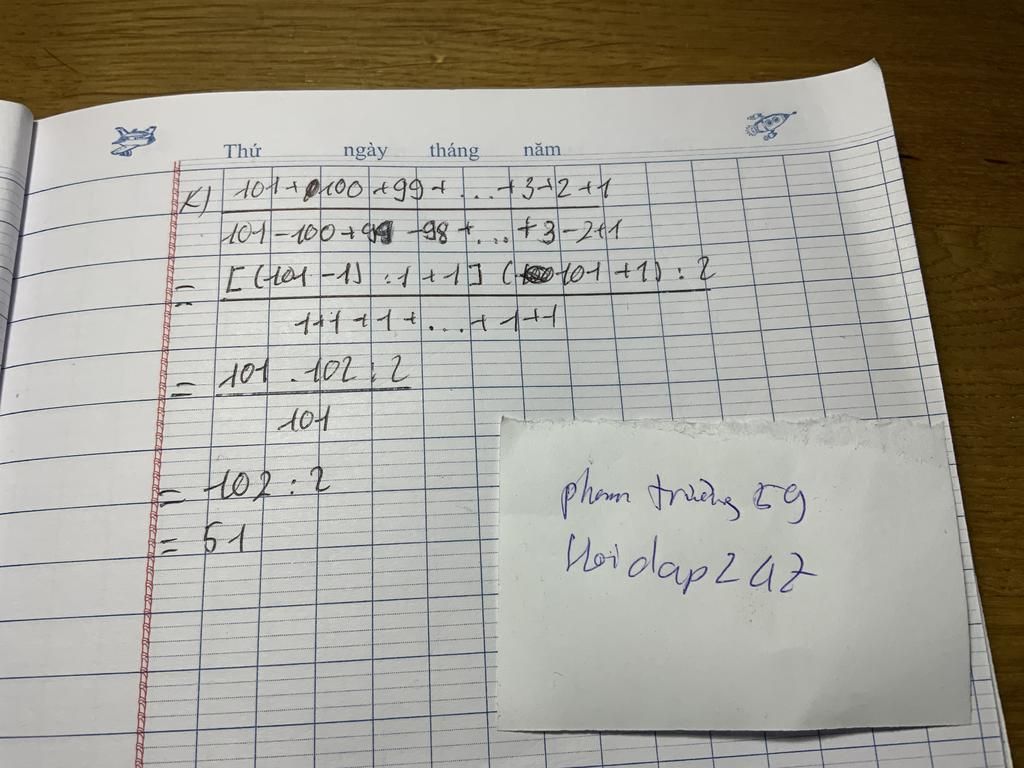 Thứ ngày tháng năm
K) 101 + 100 + 99 + ... + 3 + 2 + 1
101 - 100 + 99 - 98 + ... + 3 - 2 + 1
= [(101 - 1) : 1 + 1] (101 + 1) : 2
1 + 1 + 1 + ... + 1 + 1
= 101 . 102 : 2
101
= 102 : 2
= 51
pham trường
Hoidap247